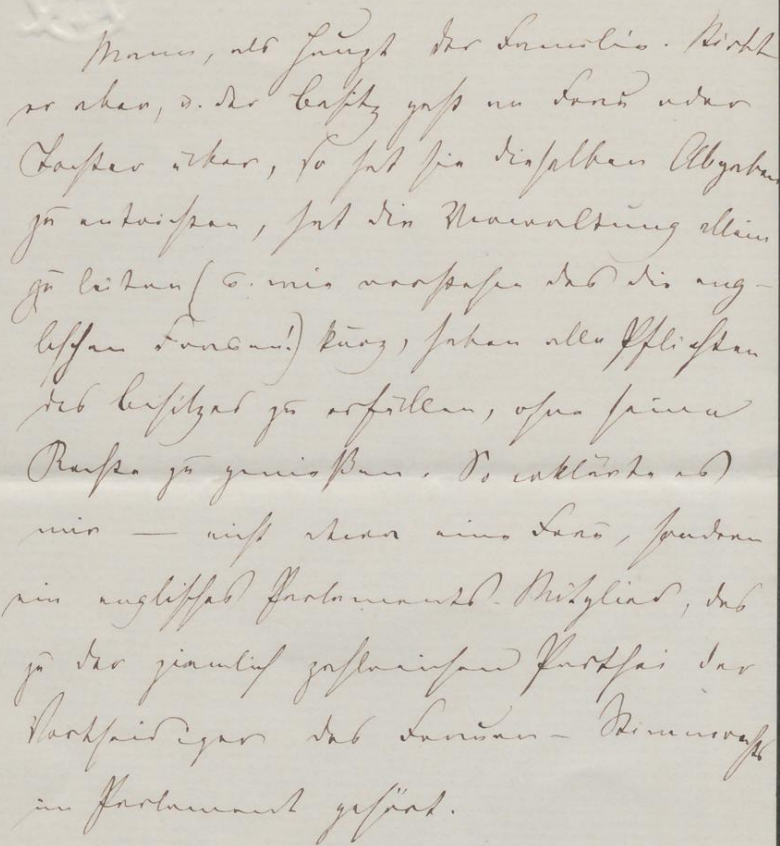 Mann, als Haupt der Familie. Stirbt
er aber, u. der Besitz geht an Frau oder
Tochter über, so hat sie dieselben Abgaben
zu entrichten, hat die Verwaltung allein
zu leiten (u. wie verstehen das die eng-
lischen Frauen!) kurz, haben alle Pflichten
des Besitzes zu erfüllen, ohne seine
Rechte zu genießen. So erklärte es
mir — nicht etwa eine Frau, sondern
ein englisches Parlaments-Mitglied, das
zu der ziemlich zahlreichen Parthei der
Vertheidiger des Frauen-Stimmrechts
im Parlament gehört.